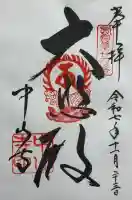 奉拝
令和七年十一月二十三日
大悲殿
中山寺